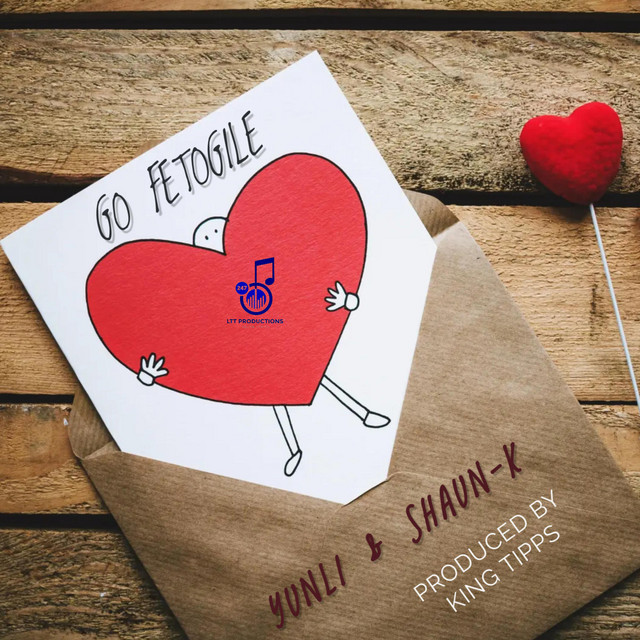 GO FETOGILE
247
17T PRODUCTIONS
YUNLI & SHAUN-K
PRODUCED BY
KING TIPPS